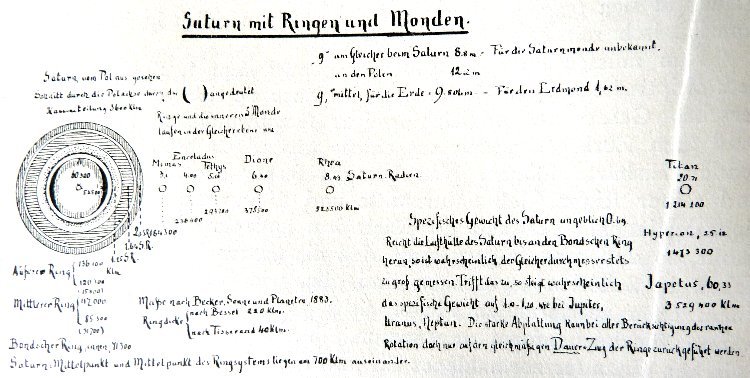 Saturn mit Ringen und Monden.
g am Gleicher beim Saturn 8.8 m - Für die Saturnmonde unbekannt.
an den Polen 12.2 m
g, mittel, für die Erde: 9.80 m - Für den Erdmond 1,62 m.
Saturn, vom Pol aus gesehen
Schnitt durch die Polachse durch die ( ) angedeutet
Ringe und die inneren 5 Monde
laufen in der Gleicherebene um
Mimas Enceladus Tethys Dione Rhea Titan
3,1 4.00 6.20 8.83 Saturn-Radien 20
238 400 375500 525500 Klm 1 214 100
60 300
Spezifisches Gewicht des Saturn angeblich 0.69
Reicht die Lufthülle des Saturn bis an den Bondschen Ring
heran, so ist wahrscheinlich der Gleicherdurchmesser stets
zu groß gemessen. Trifft das zu, so steigt wahrscheinlich
das spezifische Gewicht auf 1.0-1.20 wie bei Jupiter,
Uranus, Neptun. Die starke Abplattung kann bei aller Berücksichtigung der raschen
Rotation doch nur auf den gleichmäßigen Dauer-Zug der Ringe zurückgeführt werden
Hyperion, 25.12
1473 300
Japetus, 60,33
3 529 400 Klm
Äußerer Ring 136 400 Klm
120 400
Mittlerer Ring 117 000
85 300
Maße nach Becker, Sonne und Planeten 1883.
Ringdicke nach Bessel 220 Klm.
nach Tisserand 40 Klm.
Bondscher Ring, innen, 71300
Saturn-Mittelpunkt und Mittelpunkt des Ringsystems liegen um 700 Klm auseinander.